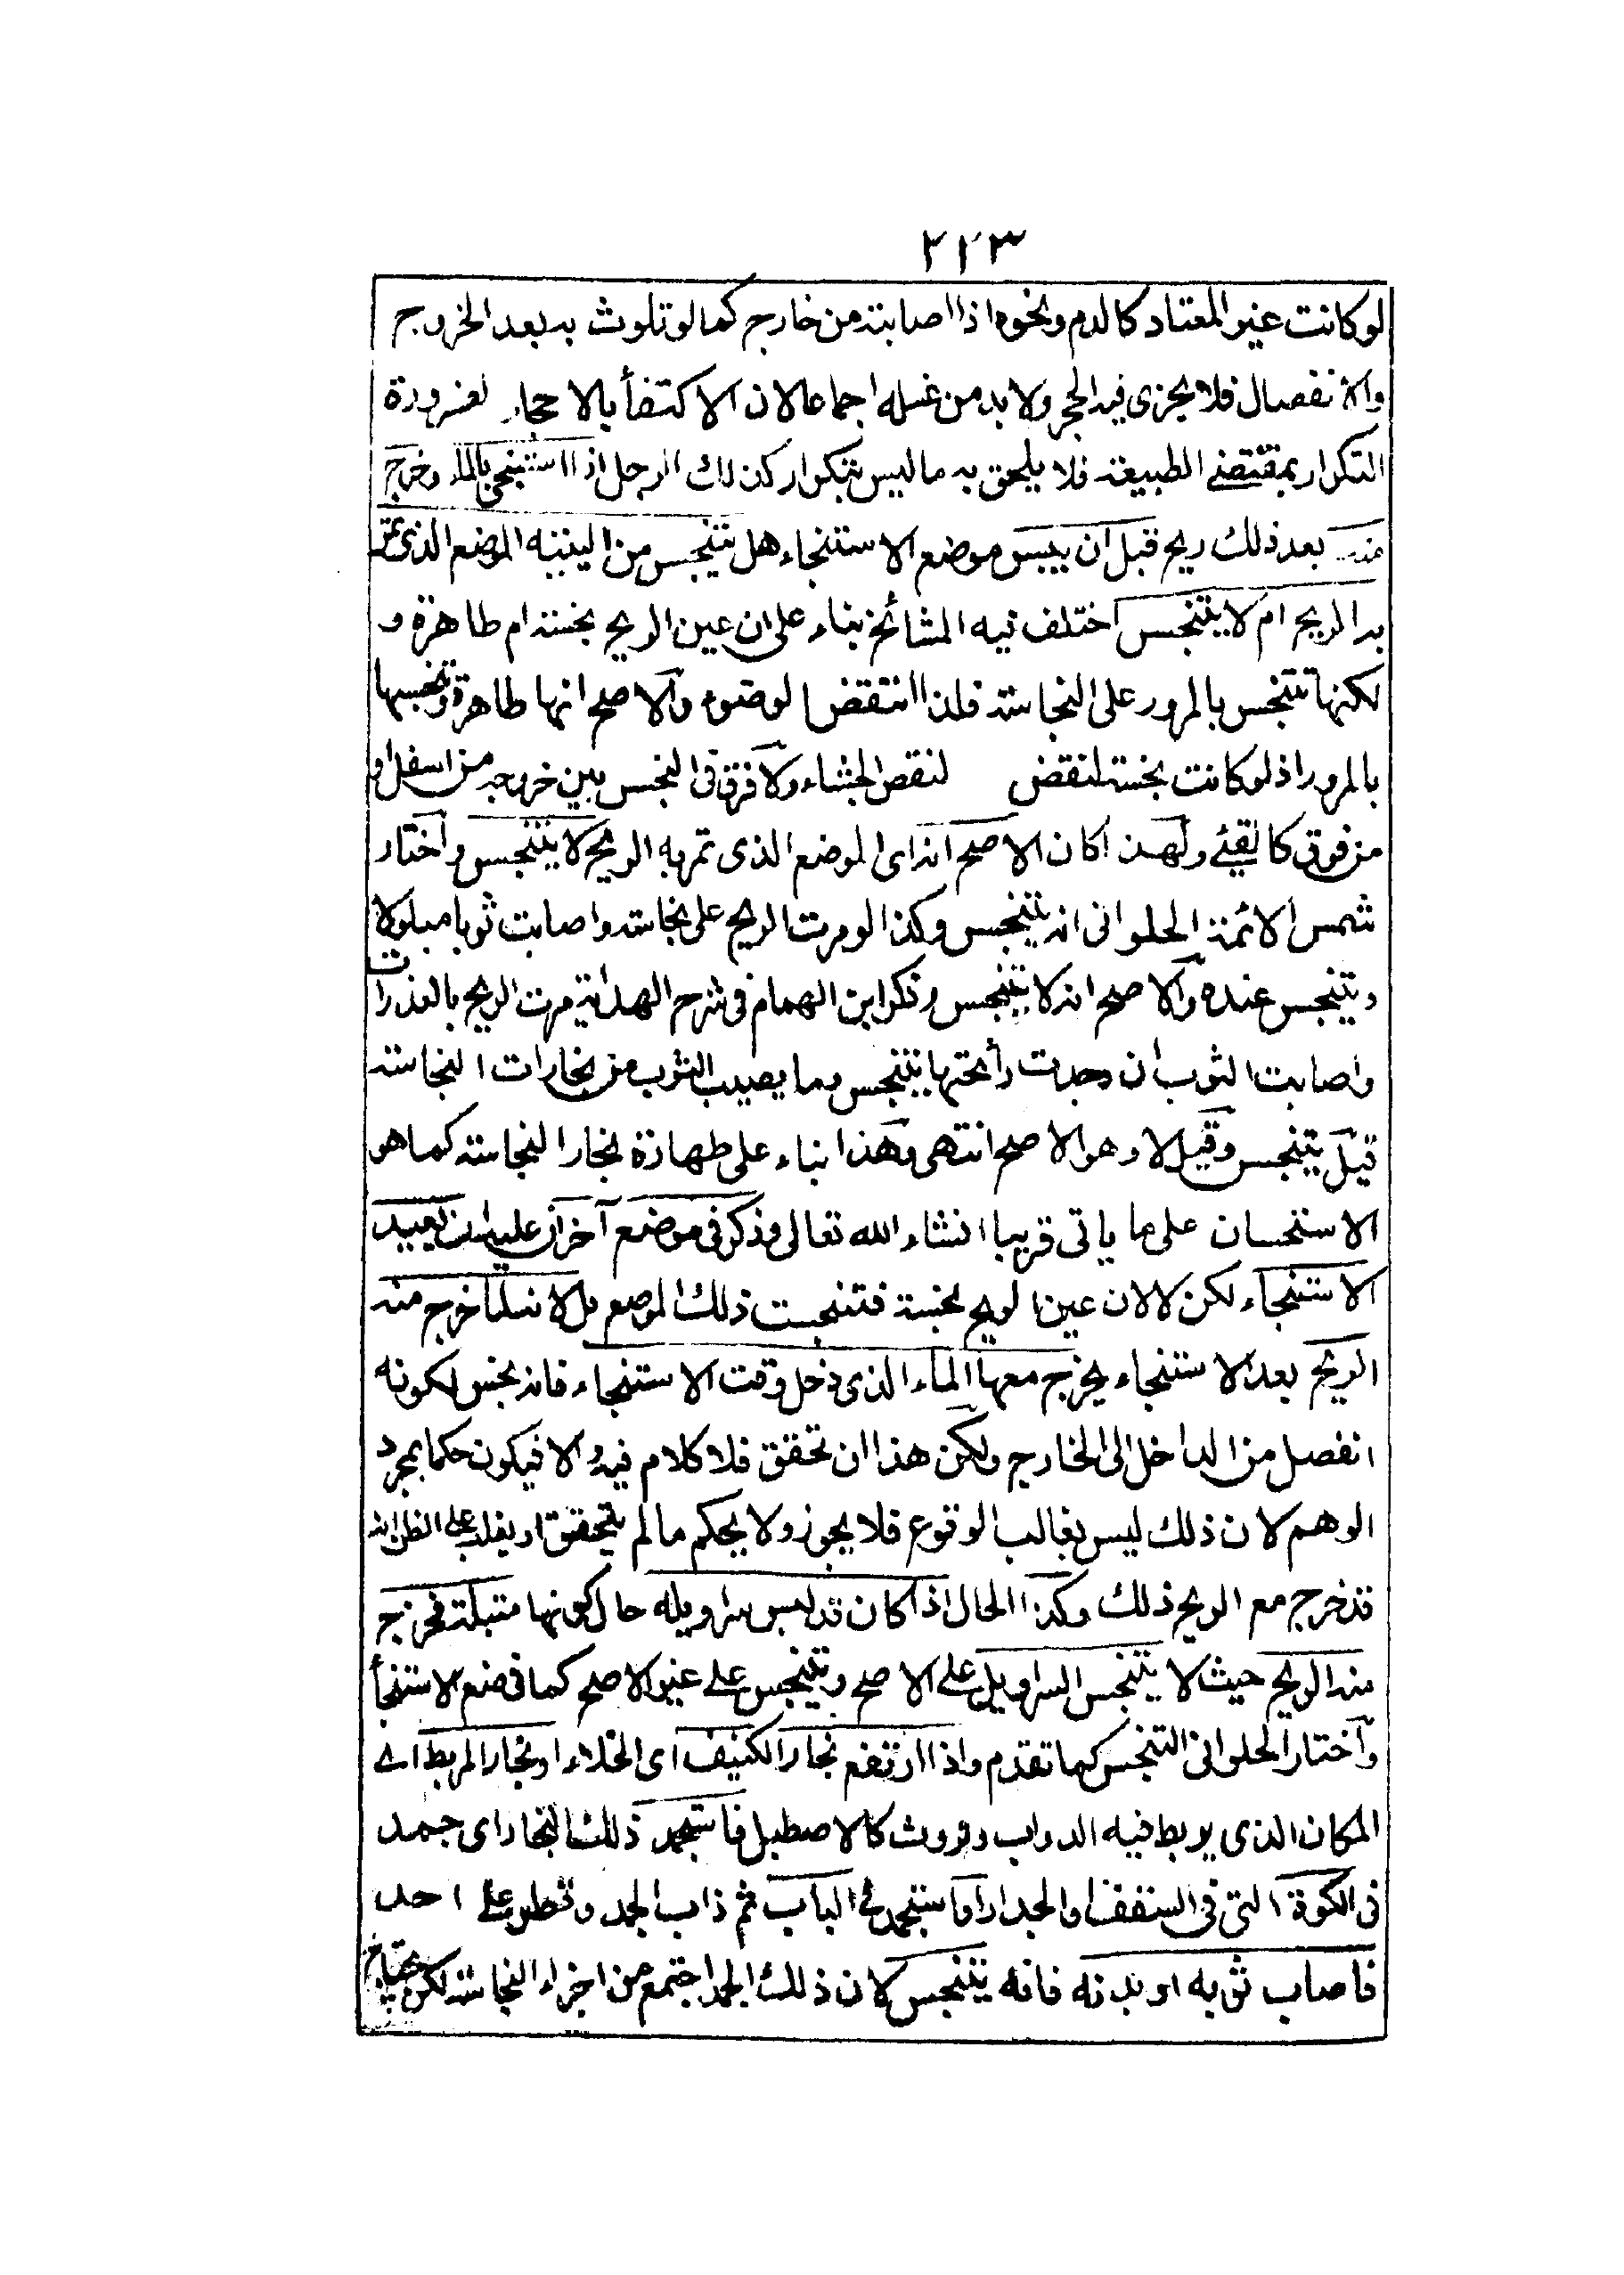 ٢١٣
لو كانت غير المعتاد كالدم ونحوه اذا اصابته من خارج كما لو تلوث به بعد الخروج
والانفصال فلا يجزى فيه الحجر ولا بد من غسله اجماعا لان الاكتفأ بالاحجار لضرورة
التكرار بمقتضے الطبيعة فلا يلحق به ما ليس بتكرار كذلك الرجل اذا استنجى بالماء وخرج
منه بعد ذلك ريح قبل ان ييبس موضع الاستنجاء هل يتنجس من اليتيه الموضع الذى تمر
به الريح ام لا يتنجس اختلف فيه المشائخ بناء على ان عين الريح نجسة ام طاهرة و
لكنها تتنجس بالمرور على النجاسة فلذا انتقض الوضوء والاصح انها طاهرة وتنجسها
بالمرور اذ لو كانت نجسة لنقض لنقض الجشاء ولا فرق فى النجس بين خروجه من اسفل او
من فوق كالقيئے ولهذا كان الاصح انه اى الموضع الذى تمر به الريح لا يتنجس واختار
شمس الائمة الحلوانى انه يتنجس وكذا لو مرت الريح على نجاسة واصابت ثوبا مبلولا
يتنجس عنده والاصح انه لا يتنجس وذكر ابن الهمام فى شرح الهداية مرت الريح بالعذرات
واصابت الثوب ان وجدت رائحتها يتنجس وما يصيب الثوب من بخارات النجاسة
قيل يتنجس وقيل لا وهو الاصح انتهى وهذا بناء على طهارة بخار النجاسة كما هو
الاستحسان على ما ياتى قريبا انشاء الله تعالى وذكر فى موضع آخر ان عليه ان يعيد
الاستنجاء لكن لا لان عين الريح نجسة فتنجست ذلك الموضع بل لانه لما خرج منه
الريح بعد الاستنجاء يخرج معها الماء الذى دخل وقت الاستنجاء فانه نجس لكونه
انفصل من الداخل الى الخارج ولكن هذا ان تحقق فلا كلام فيه والا فيكون حكما بمجرد
الوهم لان ذلك ليس بغالب الوقوع فلا يجوز ولا يحكم ما لم يتحقق او يغلب على الظن انه
قد خرج مع الريح ذلك وكذا الحال اذا كان قد لبس سراويله حال كونها مبتلة فخرج
منه الريح حيث لا يتنجس السراويل علے الاصح ويتنجس علے غير الاصح كما فى موضع الاستنجأ
واختار الحلوانى التنجس كما تقدم واذا ارتفع بخار الكنيف اى الخلاء او بخار المربط اے
المكان الذى يربط فيه الدواب وتروث كالاصطبل فاستجمد ذلك البخار اى جمد
فى الكوة التى فى السقف او الجدار او استجمد فے الباب ثم ذاب الجمد وقطر علے احد
فاصاب ثوبه او بدنه فانه يتنجس لان ذلك الجمد اجتمع من اجزاء النجاسة لكن